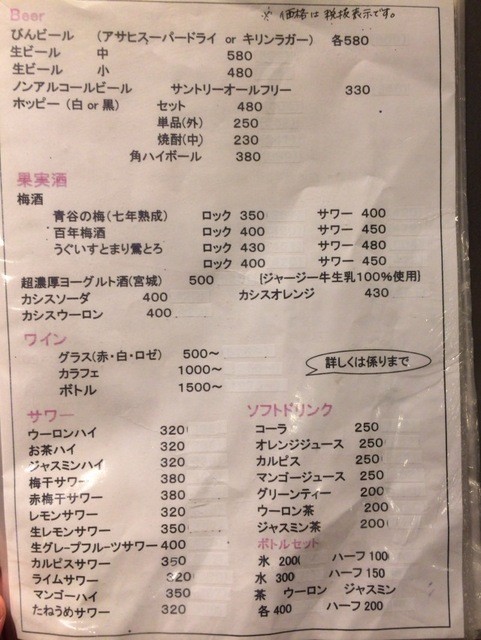 Beer ※ 価格は税抜表示です。
びんビール (アサヒスーパードライ or キリンラガー) 各580
生ビール 中 580
生ビール 小 480
ノンアルコールビール サントリーオールフリー 330
ホッピー (白 or 黒) セット 480
単品(外) 250
焼酎(中) 230
角ハイボール 380
果実酒
梅酒
青谷の梅(七年熟成) ロック 350 サワー 400
百年梅酒 ロック 400 サワー 450
うぐいすとまり鶯とろ ロック 430 サワー 480
ロック 400 サワー 450
超濃厚ヨーグルト酒(宮城) 500 (ジャージー牛生乳100%使用)
カシスソーダ 400 カシスオレンジ 430
カシスウーロン 400
ワイン
グラス(赤・白・ロゼ) 500～
カラフェ 1000～
ボトル 1500～
詳しくは係りまで
サワー
ウーロンハイ 320
お茶ハイ 320
ジャスミンハイ 320
梅干サワー 380
赤梅干サワー 380
レモンサワー 320
生レモンサワー 350
生グレープフルーツサワー 400
カルピスサワー 350
ライムサワー 320
マンゴーハイ 350
たねうめサワー 320
ソフトドリンク
コーラ 250
オレンジジュース 250
カルピス 250
マンゴージュース 250
グリーンティー 200
ウーロン茶 200
ジャスミン茶 200
ボトルセット
氷 200 ハーフ 100
水 300 ハーフ 150
茶 ウーロン ジャスミン
各400 ハーフ 200